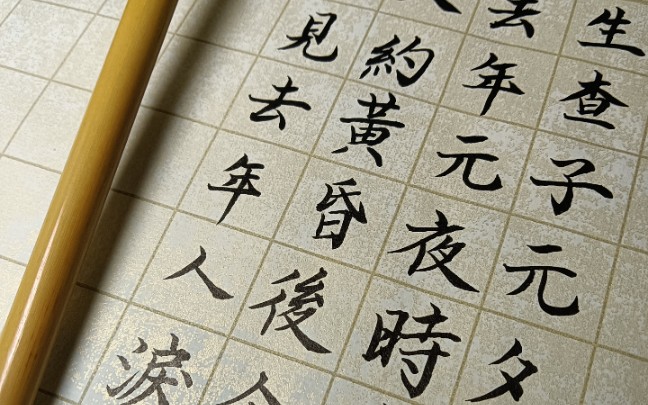 生查子元夕
去年元夜時
約黃昏後
見去年人淚